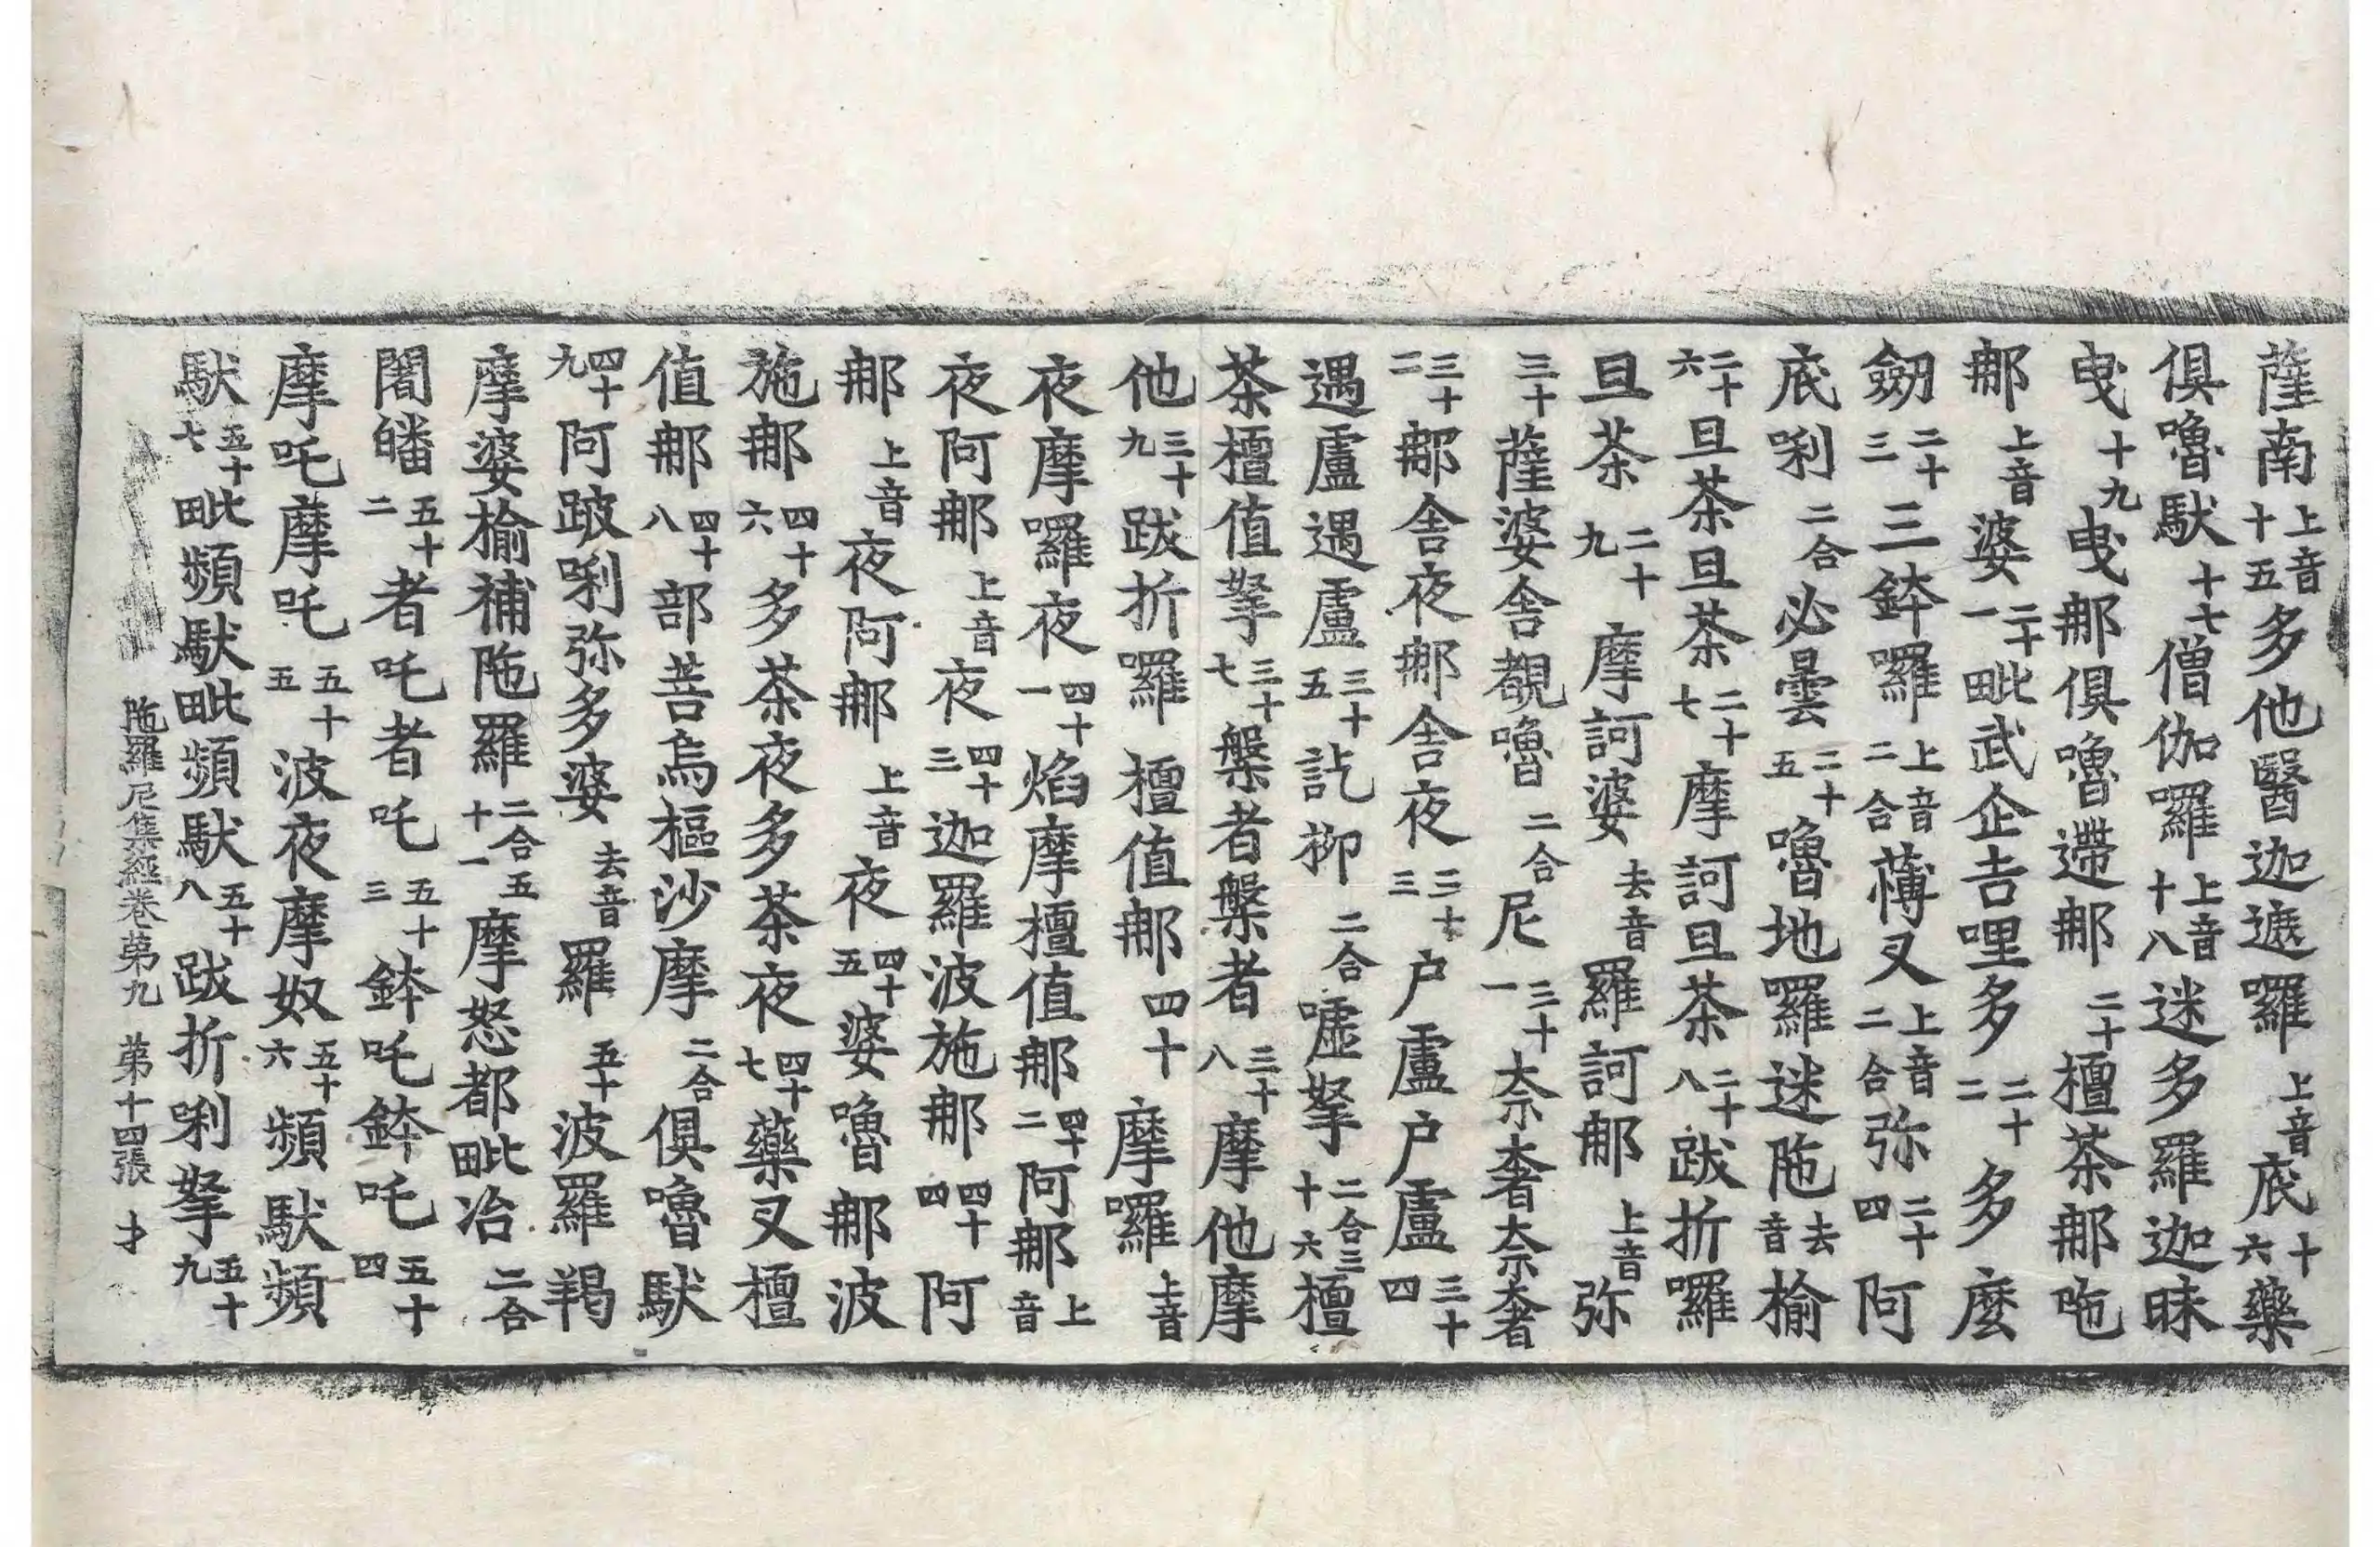 薩南上音十五多他醫迦遮囉上音底十六藥
俱嚕馱十七僧伽囉上音十八迷多羅迦昧
曳十九曳那俱嚕遰那二十檀茶那吔
那上音婆二十一毗武企吉哩多二十二多麼
劒二十三三鉢囉上音二合薄叉上音二合弥二十四阿
底唎二合必曇二十五嚕地囉迷陁去音榆
二十六旦茶旦茶二十七摩訶旦茶二十八跋折囉
旦茶二十九摩訶婆去音羅訶那上音弥
三十薩婆舍覩嚕二合尼三十一奈奢奈奢
三十二那舍夜那舍夜三十三户盧户盧三十四
遇盧遇盧三十五訖柳二合嘘拏二合三十六檀
茶檀值拏三十七槃者槃者三十八摩他摩
他三十九跋折囉檀值那四十摩囉上音
夜摩囉夜四十一焰摩檀值那四十二阿那上音
夜阿那上音夜四十三迦羅波施那四十四阿
那上音夜阿那上音夜四十五婆嚕那波
施那四十六多茶夜多茶夜四十七藥叉檀
值那四十八部菩烏樞沙摩二合俱嚕馱
四十九阿跛唎弥多婆去音羅五十波羅羯
摩婆榆補陁羅二合五十一摩怒都毗冶二合
闍皤五十二者吒者吒五十三鉢吒鉢吒五十四
摩吒摩吒五十五波夜摩奴五十六頻馱頻
馱五十七毗頻馱毗頻馱五十八跋折唎拏五十九
陁羅尼集經卷第九 第十四張 才